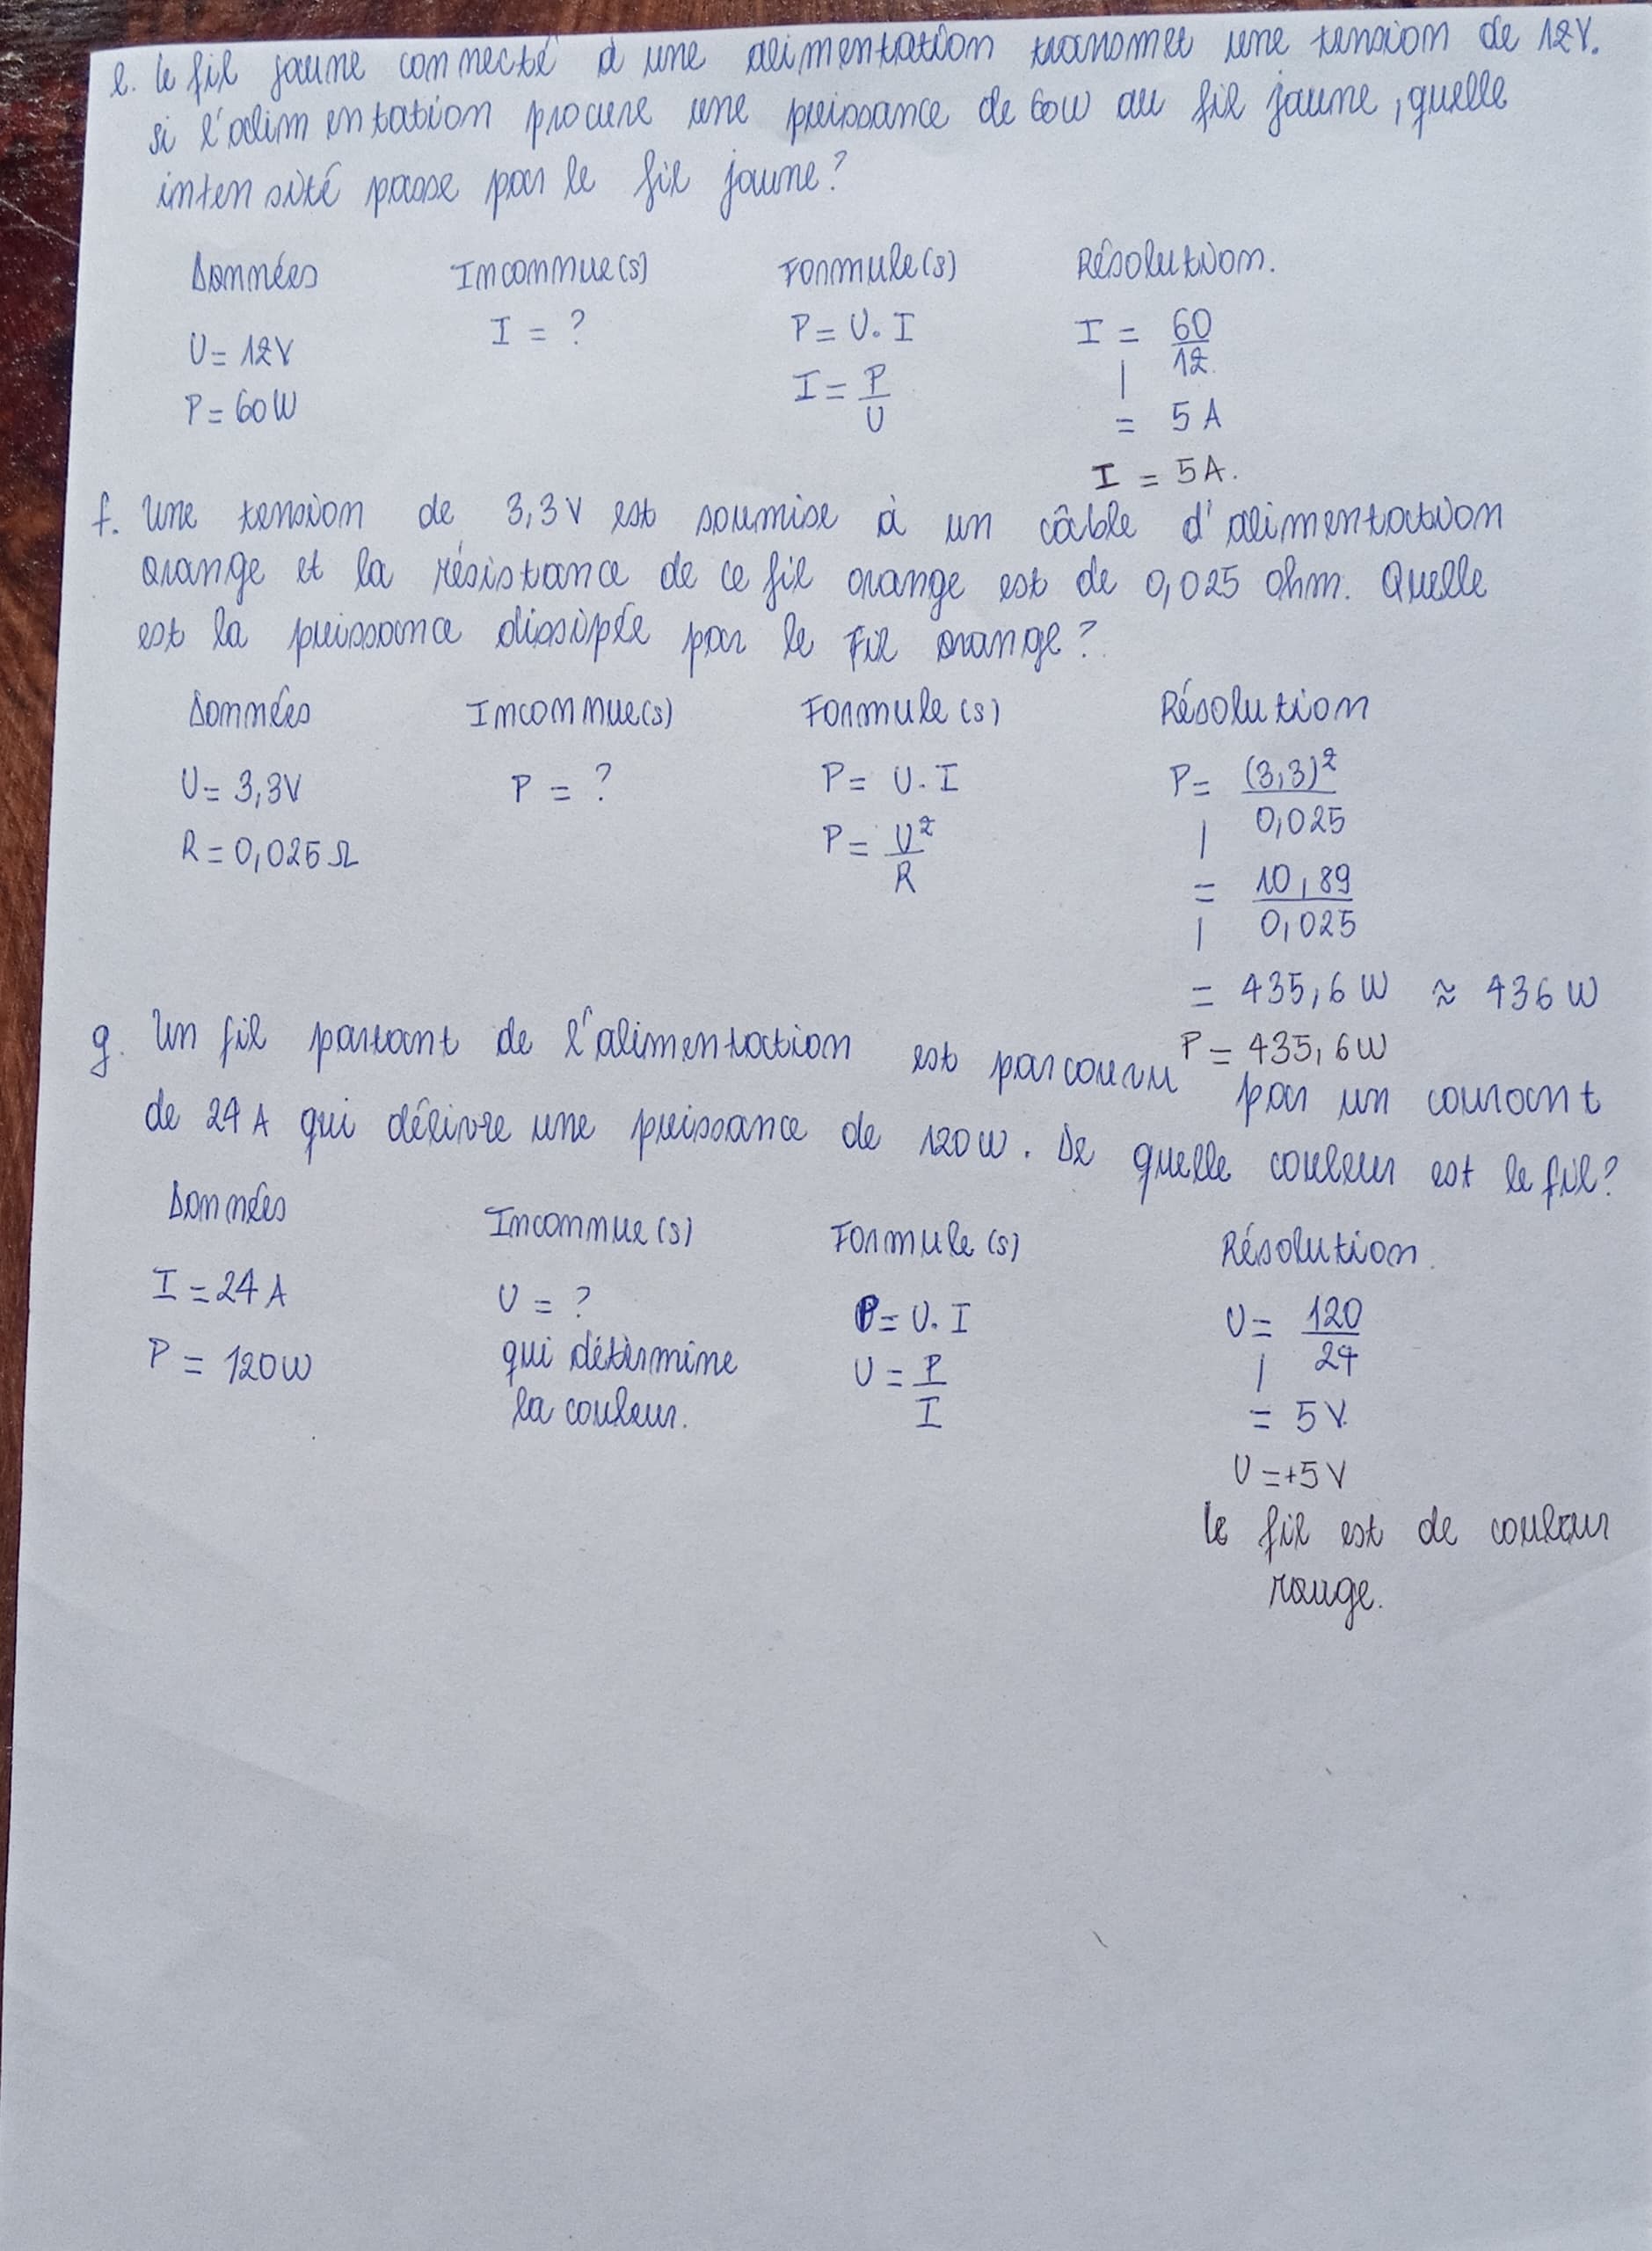 e. Le fil jaune connecté à une alimentation transmet une tension de 12V.
si l'alimentation procure une puissance de 60W au fil jaune, quelle
intensité passe par le fil jaune?
Données Inconnue(s) Formule(s) Résolution.
U = 12V I = ? P = U. I I = 60/12
P = 60W I = P/U = 5 A
I = 5A.
f. Une tension de 3,3V est soumise à un câble d'alimentation
orange et la résistance de ce fil orange est de 0,025 ohm. Quelle
est la puissance dissipée par le Fil orange?
Données Inconnue(s) Formule(s) Résolution
U = 3,3V P = ? P = U. I P = (3,3)²/0,025
R = 0,025Ω P = U²/R = 10,89/0,025
= 435,6 W ≈ 436 W
P = 435,6W
g. Un fil partant de l'alimentation est parcouru par un courant
de 24A qui délivre une puissance de 120W. De quelle couleur est le fil?
Données Inconnue(s) Formule(s) Résolution.
I = 24A U = ? P = U. I U = 120/24
P = 120W qui détèrmine U = P/I = 5V.
la couleur.
U = +5V
Le fil est de couleur
rouge.